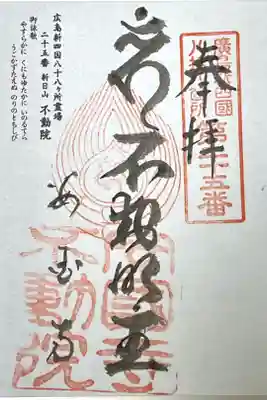 奉拝
廣島新四國
八十八ヶ所
第二十五番
不動明王
安国寺
安國寺
不動院
広島新四国八十八ヶ所霊場
二十五番 新日山 不動院
御詠歌
やすらかに くにもゆたかに いのるてら
うごかずたえぬ のりのともしび